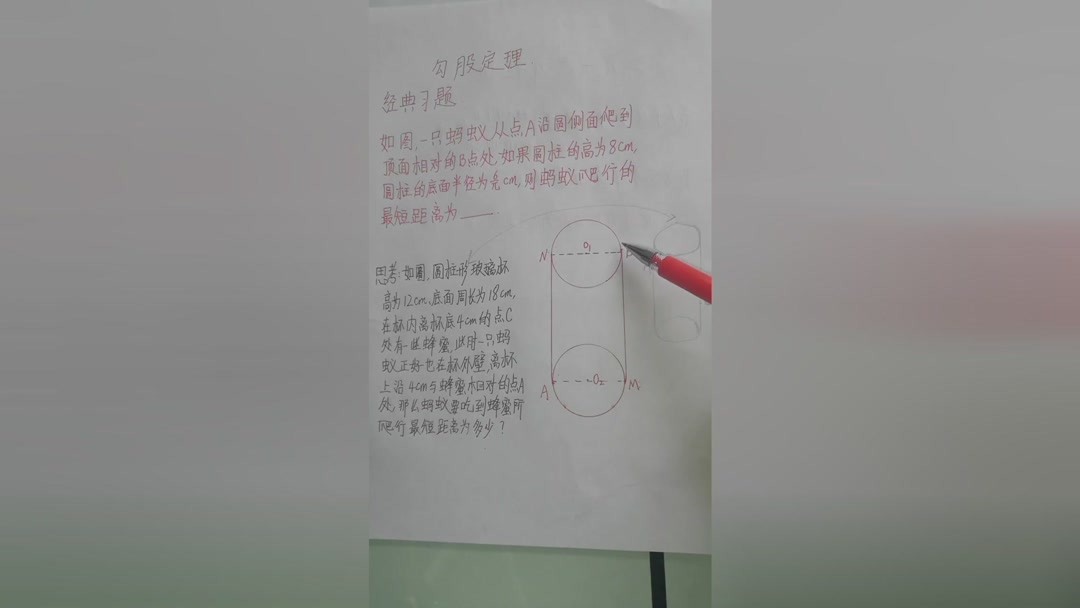 勾股定理
经典习题
如图,一只蚂蚁从点A沿圆侧面爬到
顶面相对的B点处,如果圆柱的高为8cm,
圆柱的底面半径为 cm,则蚂蚁爬行的
最短距离为____.
思考:如图,圆柱形玻璃杯
高为12cm,底面周长为18cm,
在杯内离杯底4cm的点C
处有一些蜂蜜,此时一只蚂
蚁正好也在杯外壁,离杯
上沿4cm与蜂蜜相对的点A
处,那么蚂蚁要吃到蜂蜜所
爬行最短距离为多少?
N O₁
A O₂ M